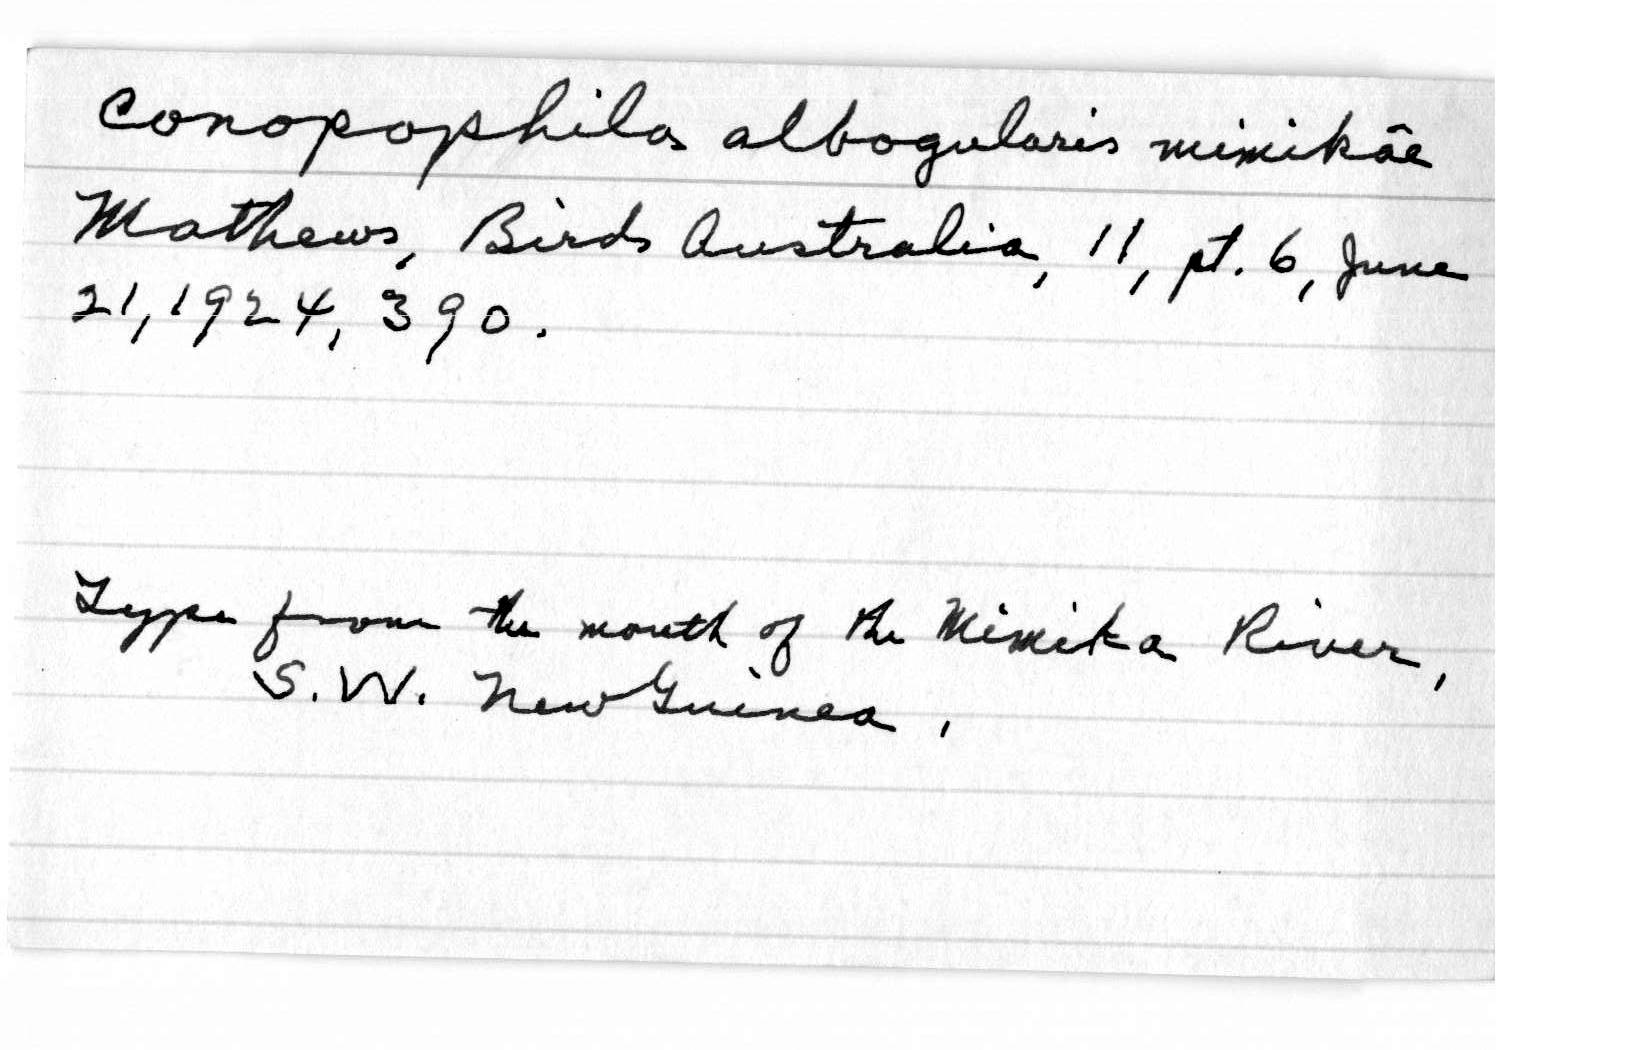 Conopophila albogularis mimikâe
Mathews, Birds Australia, 11, pt. 6, June
21, 1924, 390.
Type from the mouth of the Mimika River,
S.W. New Guinea.